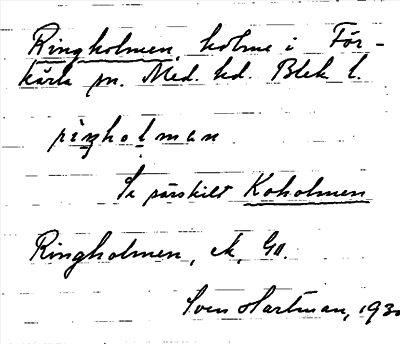 Ringholmen, holme i För-
kärla sn. Med. hd. Blek. l.
riŋholman
Se särskilt Koholmen
Ringholmen, ek, GU.
Sven Hartman, 193